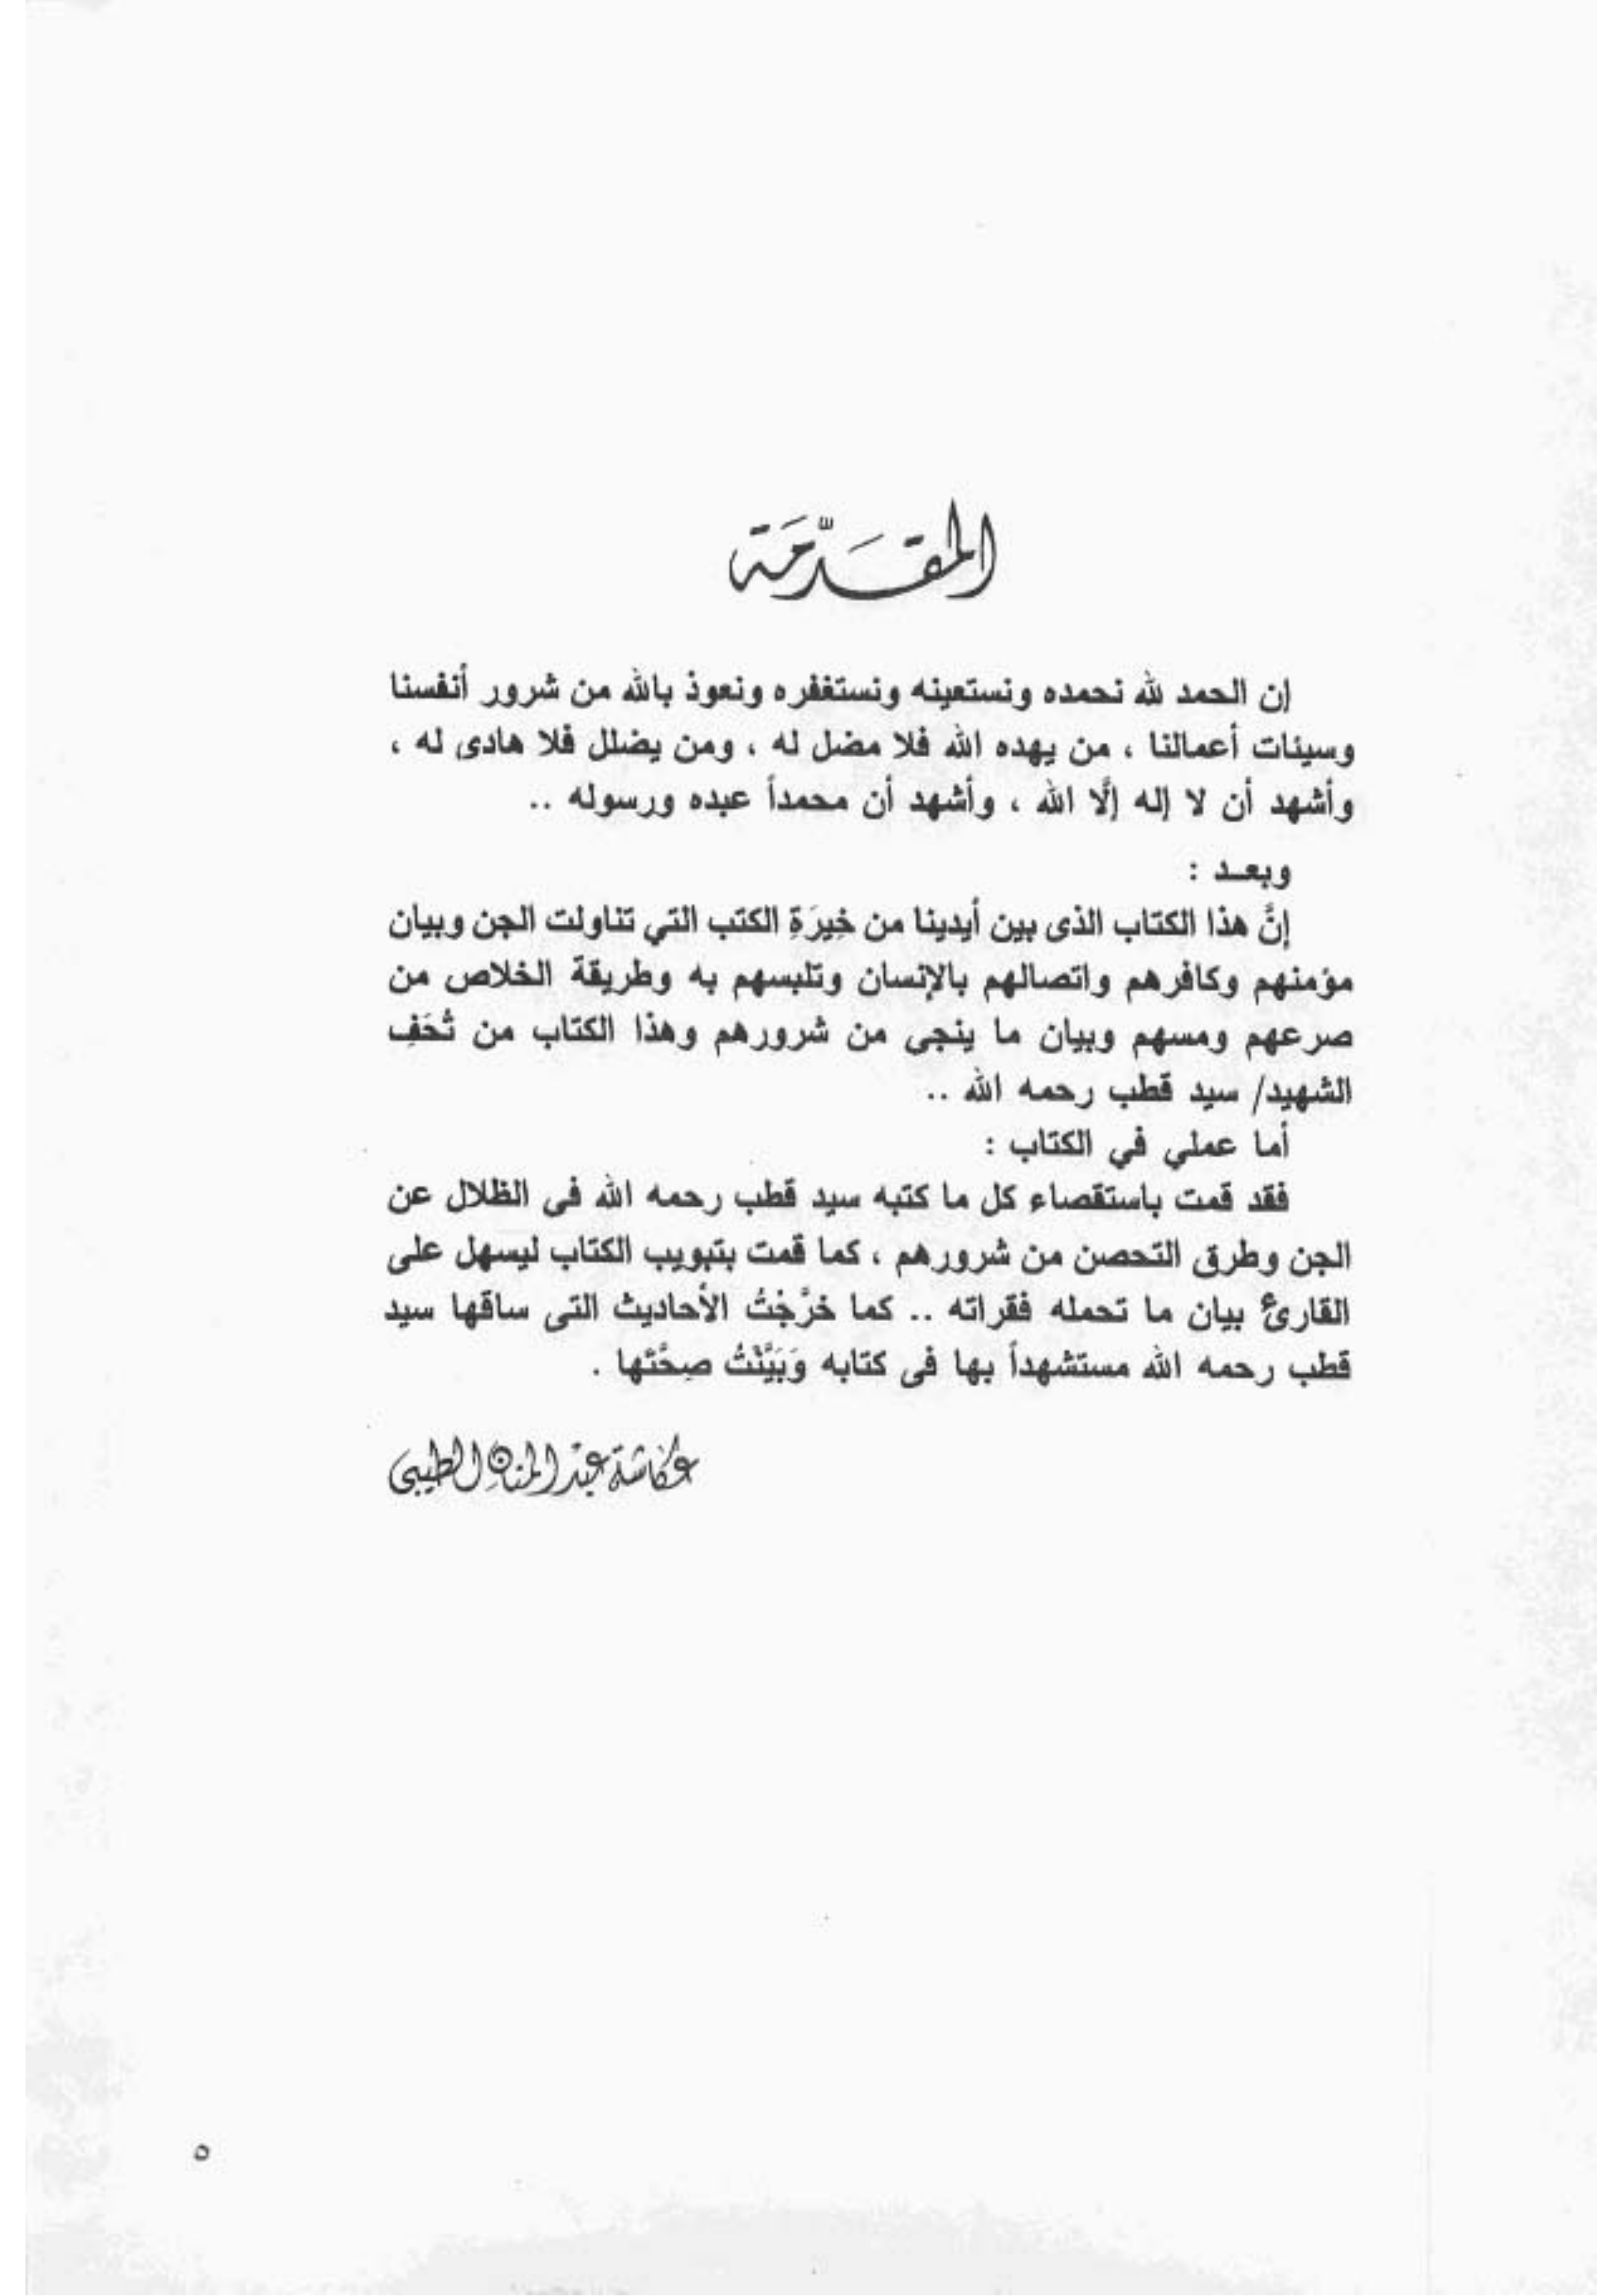 المقَدِّمَة
إن الحمد لله نحمده ونستعينه ونستغفره ونعوذ بالله من شرور أنفسنا
وسيئات أعمالنا ، من يهده الله فلا مضل له ، ومن يضلل فلا هادى له ،
وأشهد أن لا إله إلَّا الله ، وأشهد أن محمداً عبده ورسوله ..
وبعـد :
إنَّ هذا الكتاب الذى بين أيدينا من خِيرَةِ الكتب التي تناولت الجن وبيان
مؤمنهم وكافرهم واتصالهم بالإنسان وتلبسهم به وطريقة الخلاص من
صرعهم ومسهم وبيان ما ينجى من شرورهم وهذا الكتاب من تُحَفِ
الشهيد/ سيد قطب رحمه الله ..
أما عملي في الكتاب :
فقد قمت باستقصاء كل ما كتبه سيد قطب رحمه الله فى الظلال عن
الجن وطرق التحصن من شرورهم ، كما قمت بتبويب الكتاب ليسهل على
القارئ بيان ما تحمله فقراته .. كما خرَّجْتُ الأحاديث التى ساقها سيد
قطب رحمه الله مستشهداً بها فى كتابه وَبَيَّنْتُ صِحَّتَها .
عكاشة عبد المنان الطيبى
٥